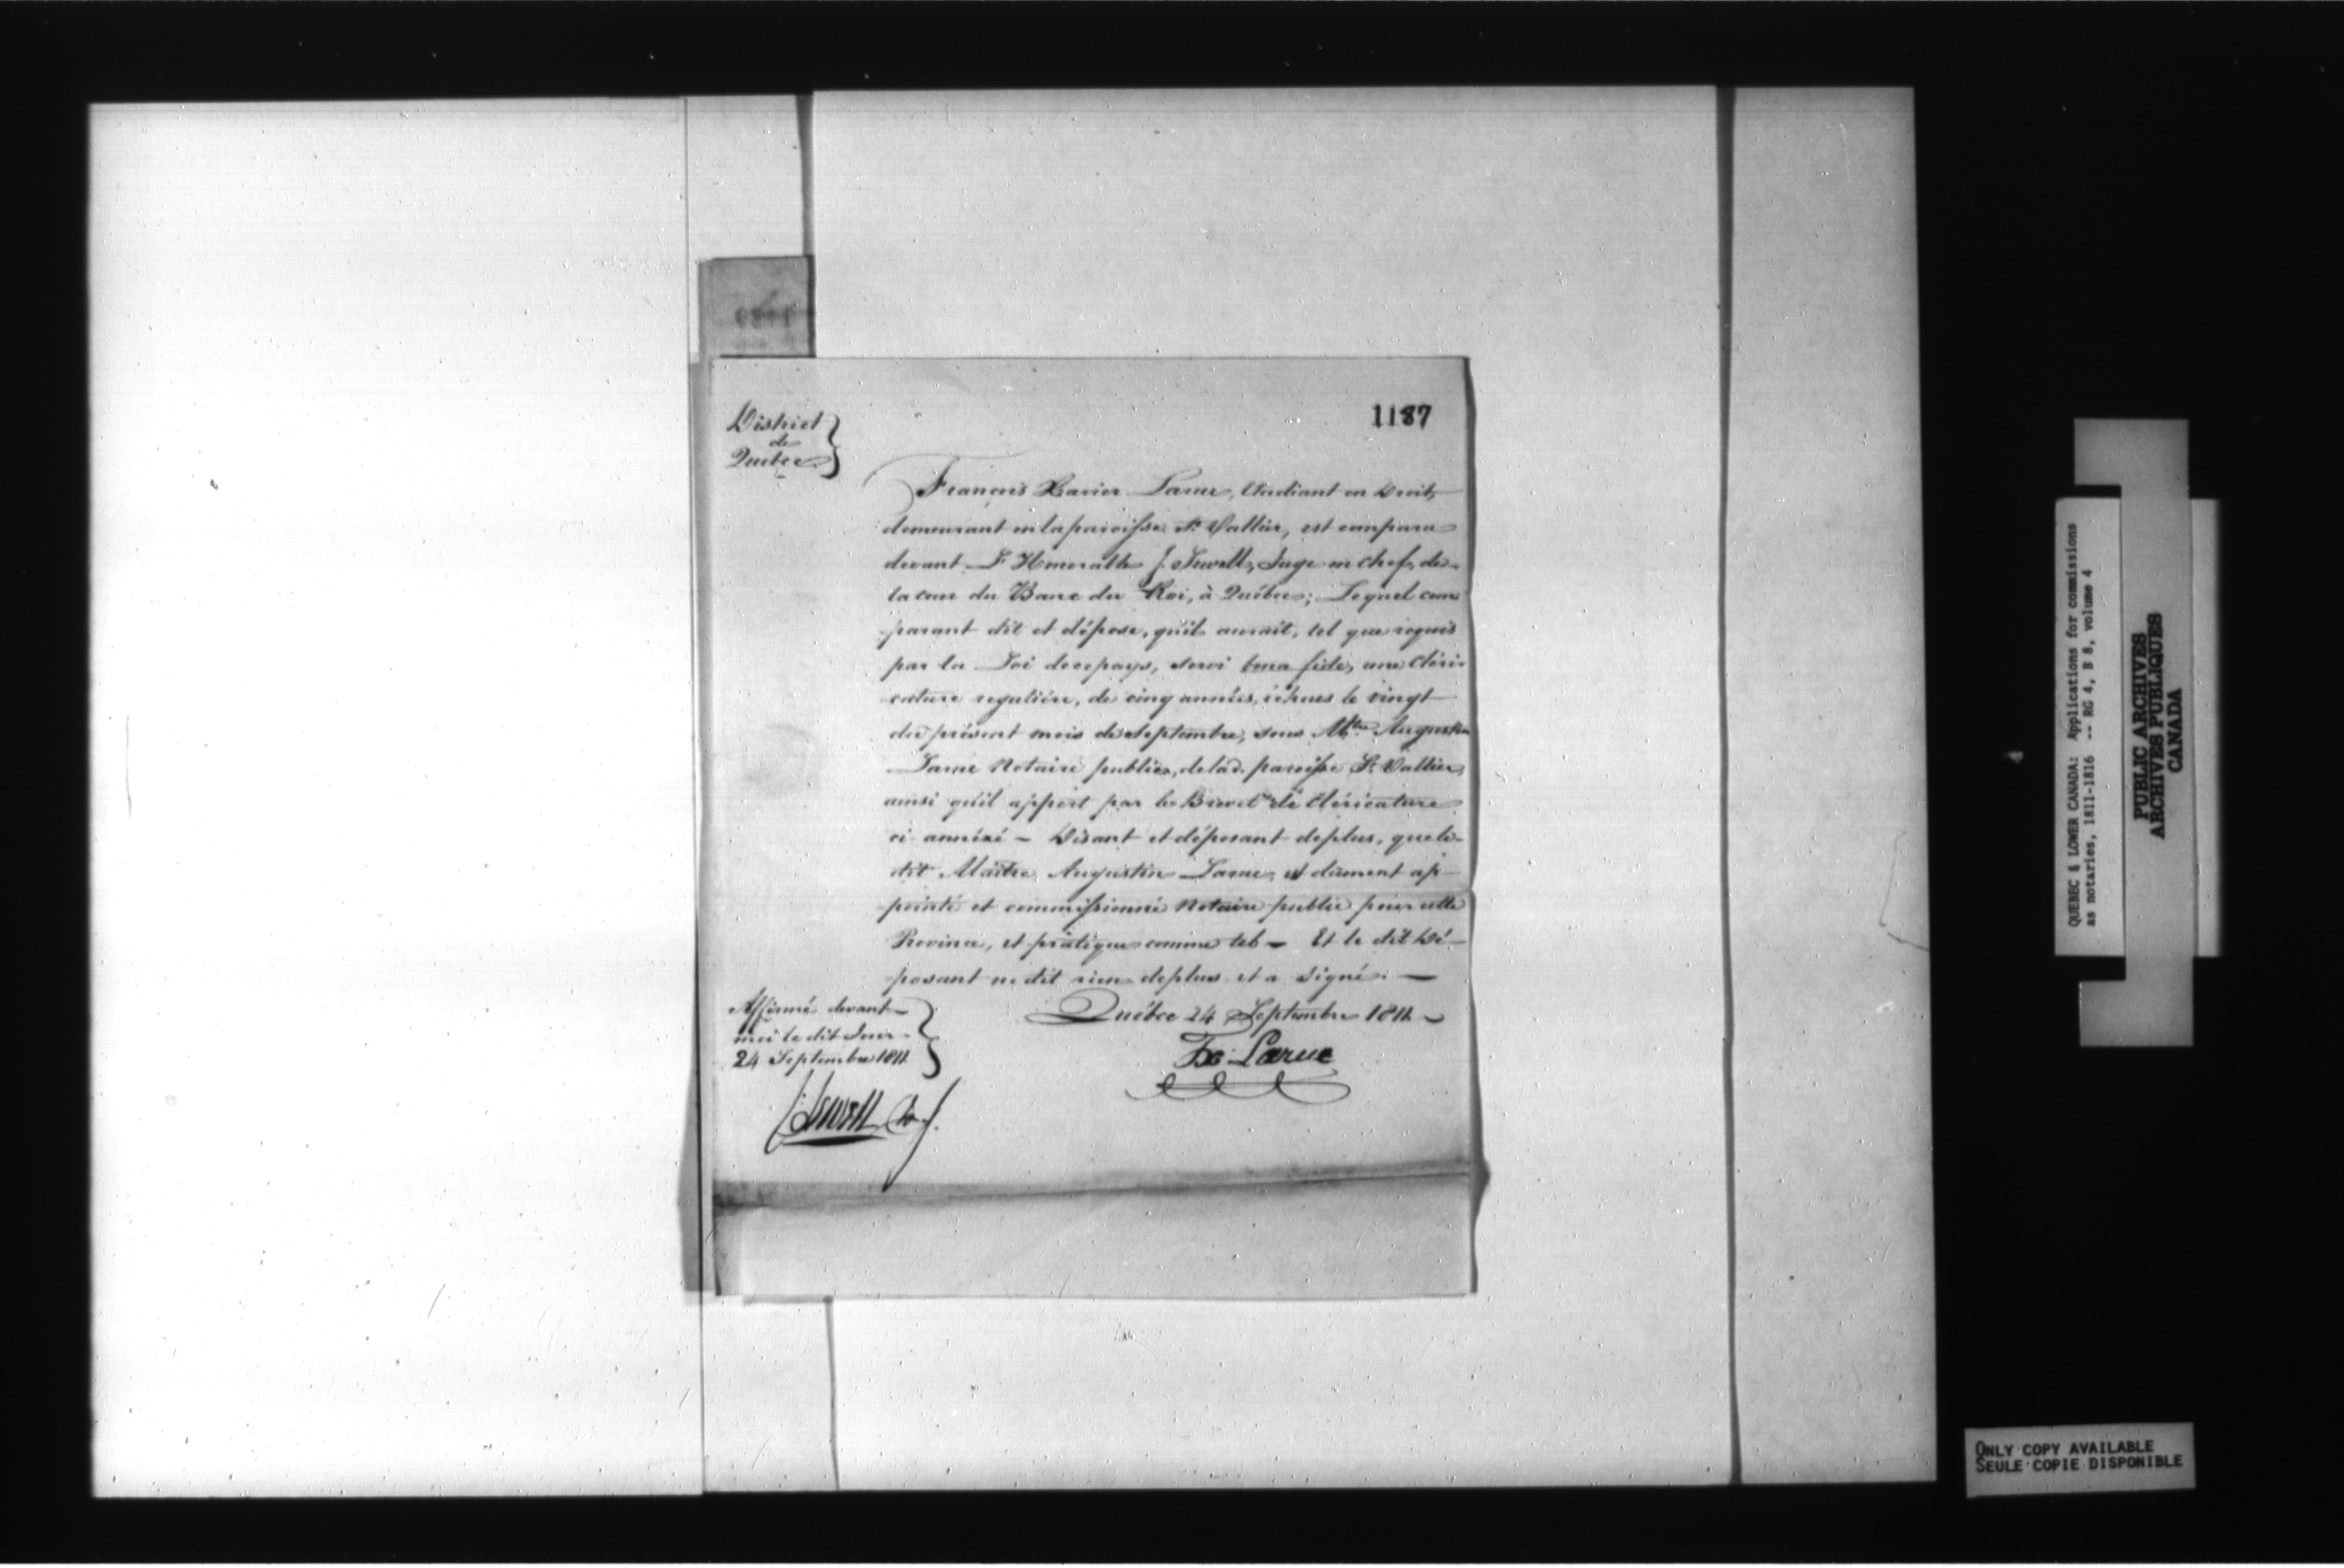 1187
District
de
Québec
François Xavier Larue, Etudiant en Droit,
demeurant en la paroisse St. Vallier, est comparu
devant L'Honorable J. Sewell, Juge en chef, de
la cour du Banc du Roi, à Québec; Lequel com-
parant dit et dépose, qu'il aurait, tel que requis
par la Loi de ce pays, servi bona fide, une cléri-
cature regulière, de cinq années, échues le vingt
du présent mois de Septembre, sous Mtre. Augustin
Larue Notaire public, de lad. paroisse St. Vallier,
ainsi qu'il appert par le Brevet de cléricature
ci annéxé — Disant et déposant deplus, que le
dit Maître Augustin Larue, est dûment ap-
pointé et commissionné Notaire public pour cette
Province, et pratique comme tel — Et le dit Dé-
posant ne dit rien deplus et a signé. —
Québec 24 Septembre 1811 —
Fx. Larue
Affirmé devant
moi le dit Jour
24 Septembre 1811
J Sewell
QUEBEC & LOWER CANADA: Applications for commissions
as notaries, 1811-1816 -- RG 4, B 8, volume 4
PUBLIC ARCHIVES
ARCHIVES PUBLIQUES
CANADA
ONLY COPY AVAILABLE
SEULE COPIE DISPONIBLE